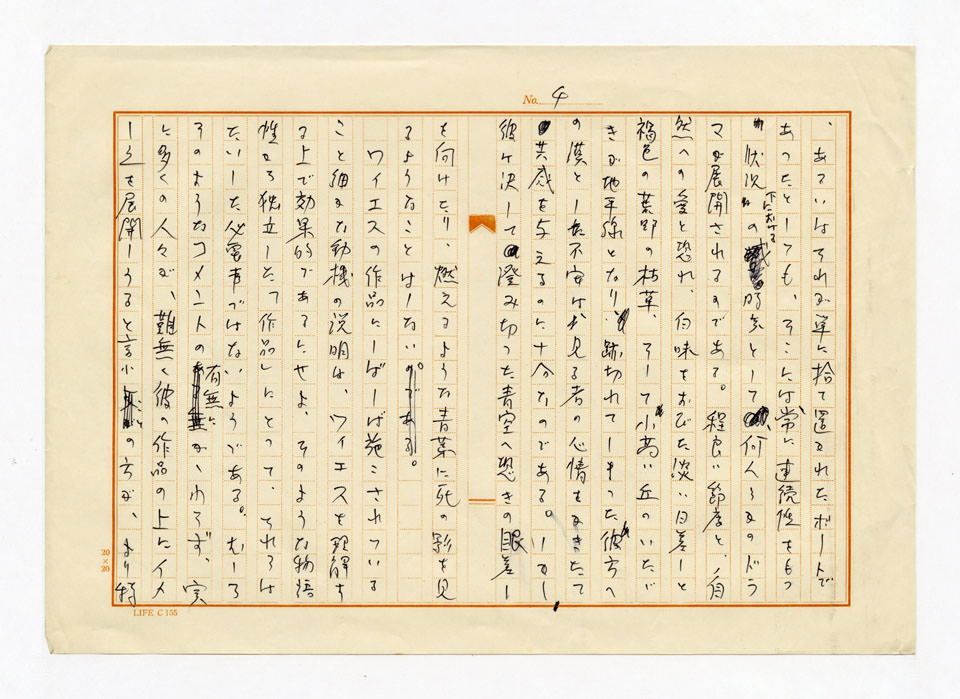 No. 4
、あるいはそれが単に捨て置かれたボートで
あったとしても、そこには常に連続性をもつ
状況下における の 時気として何んらかのドラ
マが展開されるのである。程良い節度と、自
然への愛と恐れ、白味をおびた淡い日差しと
褐色の荒野の枯草、そして小高い丘のいただ
きが地平線となり、跡切れてしまった彼方へ
の漠とした不安は見る者の心情をかきたて
共感を与えるのに十分なのである。しかし
彼は決して澄み切った青空へ恐きの眼差し
を向けたり、燃えるような青葉に死の影を見
るようなことはしない。
ワイエスの作品にしばしば施こされている
こと細かな動機の説明は、ワイエスを理解す
る上で効果的であるにせよ、そのような物語
性から独立した「作品」にとって、それらは
たいした必要事ではないようである。むしろ
そのようなコメントの有無にかゝわらず、実
に多くの人々が、難無く彼の作品の上にイメ
ージを展開しうると言う の方が、より特
20×20
LIFE C 155